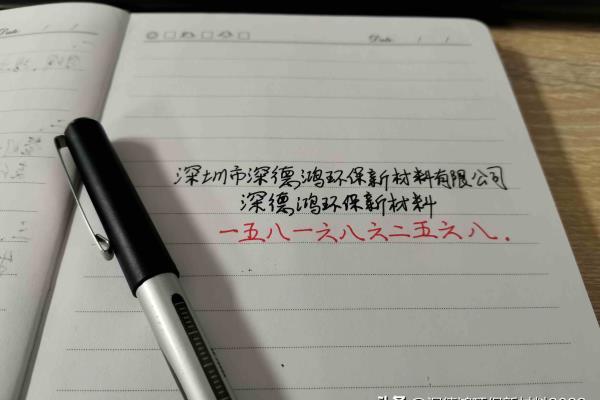 Date / /
深圳市深德鸿环保新材料有限公司
深德鸿环保新材料
一五八一六八六二五六八.